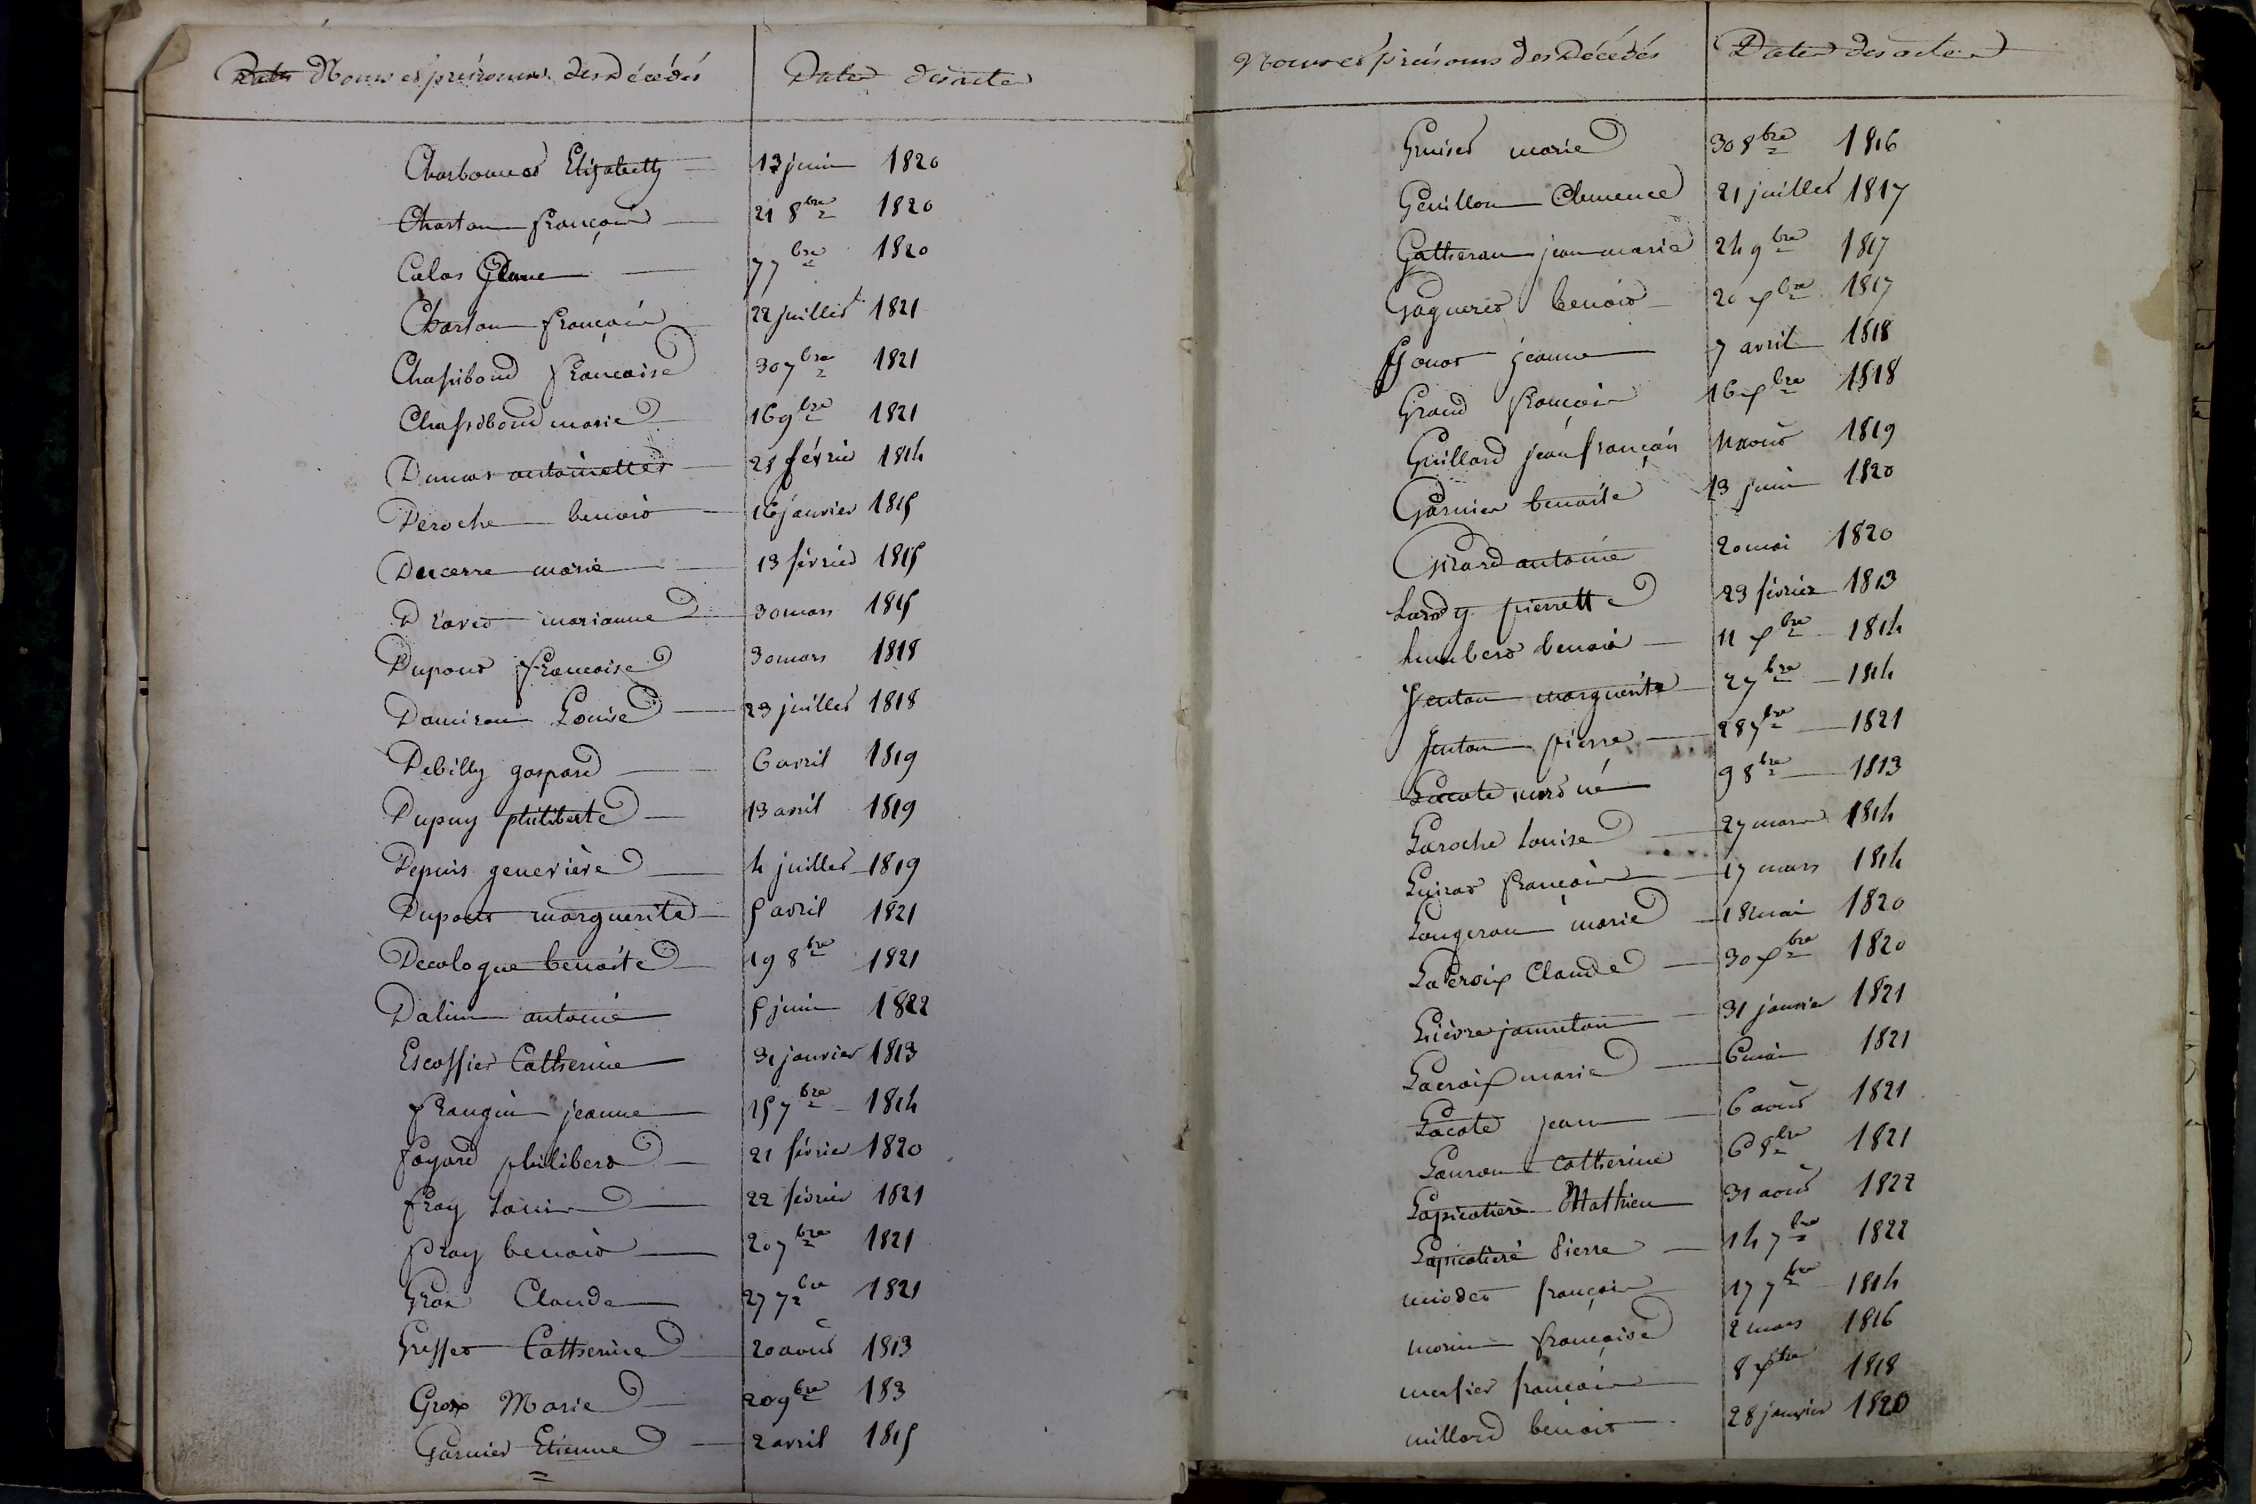 Noms et prénoms des Décédés Dates des actes
Charbonnet Elizabeth 13 juin 1820
Charton françois 21 8bre 1820
Calas 7 7bre 1820
Charton françois 22 juillet 1821
Chassiboud françoise 30 7bre 1821
Chassiboud marie 16 9bre 1821
Dumas antoinette 25 févrie 1814
Deroche benoit 16 janvier 1815
Ducerre marie 13 février 1815
Dravet marianne 30 mars 1815
Dupont françoise 30 mars 1818
Damiron Louise 23 juillet 1818
Debilly gaspard 6 avril 1819
Dupuy philiberte 13 avril 1819
Depuis geneviève 4 juillet 1819
Dupont marguerite 5 avril 1821
Decologne benoite 19 8bre 1821
Dalin antoine 5 juin 1822
Escoffier Catherine 31 janvier 1813
frangin jeanne 15 7bre 1814
fayard philibert 21 février 1820
fray Louis 22 février 1821
fray benoit 20 7bre 1821
Gras Claude 27 7bre 1821
Greffet Catherine 20 aout 1813
Gros Marie 20 9bre 183
Garnier Etienne 2 avril 1815
Noms et prénoms des Décédés Dates des actes
marie 30 8bre 1816
Genillon Clemence 21 juillet 1817
Gatheran jean marie 24 9bre 1817
benoit 20 xbre 1817
Gonat jeanne 7 avril 1818
Grand françois 16 xbre 1818
Guillard jean françois 11 aout 1819
Garnier benoite 13 juin 1820
Girard antoine 20 mai 1820
pierrette 23 février 1813
humbert benoit 11 xbre 1814
Jenton marguerite 2 7bre 1814
Jenton pierre 28 7bre 1821
Lacote mort né 9 8bre 1813
Laroche Louise 27 mars 1814
françois 17 mars 1814
Longeron marie 18 mai 1820
Lacroix Claude 30 xbre 1820
Lièvre janneton 31 janvie 1821
Lacroix marie 6 mai 1821
Lacote jean 6 aout 1821
Lauron Catherine 6 8bre 1821
Lapicotière Mathieu 31 aout 1822
Lapicotière Pierre 14 7bre 1822
miodet françois 17 7bre 1814
morin françoise 2 mars 1816
mersier françois 8 xbre 1818
millard benoit 28 janvier 1820